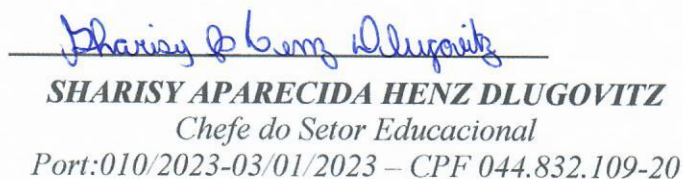 Sharisy A Henz Dlugovitz
SHARISY APARECIDA HENZ DLUGOVITZ
Chefe do Setor Educacional
Port:010/2023-03/01/2023 – CPF 044.832.109-20